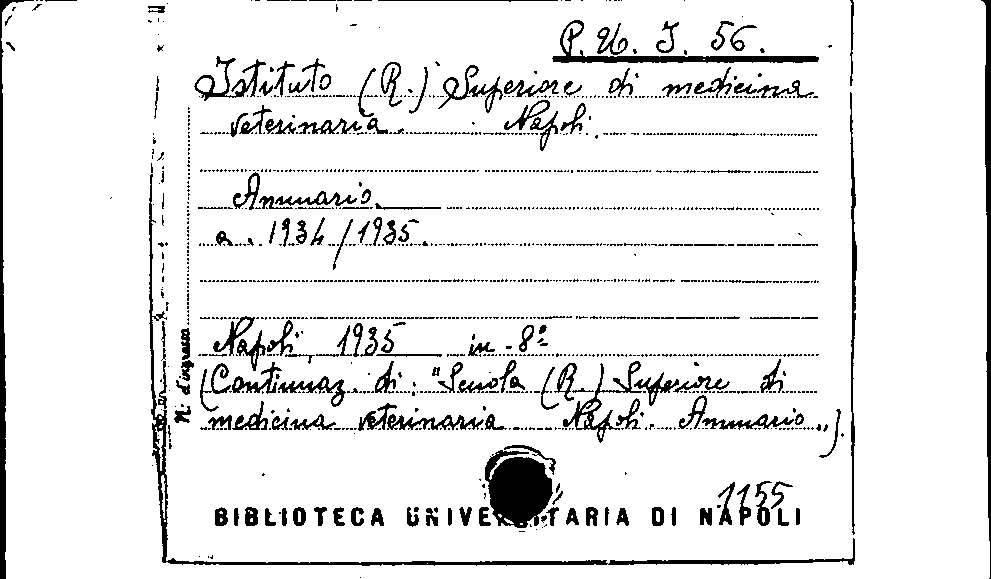 P. U. I. 56.
Istituto (R.) Superiore di medicina
veterinaria. Napoli.
Annuario.
a. 1934/1935.
Napoli, 1935 in-8º
(Continuaz. di: "Scuola (R.) Superiore di
medicina veterinaria. Napoli. Annuario„).
N. d'ingresso
1155
BIBLIOTECA UNIVERSITARIA DI NAPOLI